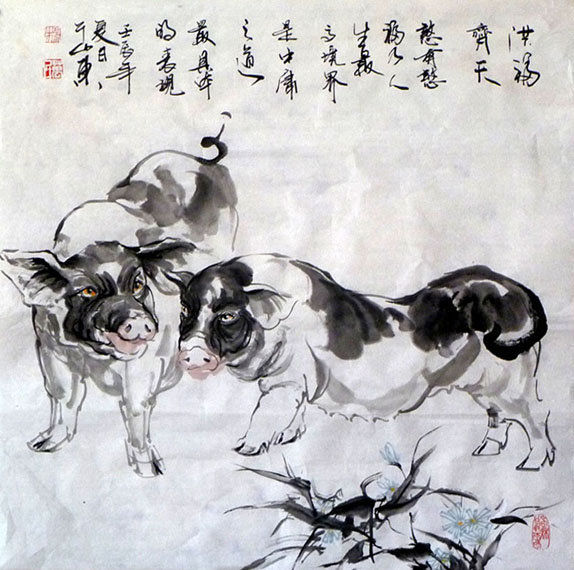 洪福
齊天
憨有憨
福乃人
生最
高境界
是中庸
之道
最具体
的表現
壬辰年
夏日
于山東